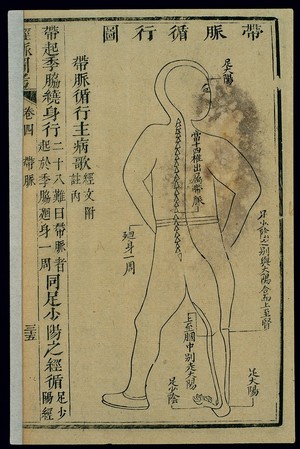 帶脈循行圖
足少陽
當十四椎出屬帶脈
廻身一周
足少陰之別與太陽合而上至腎
上至膕中別走太陽
足少陰
足太陽
帶脈循行主病歌經文附
註內
帶起季脇繞身行二十八難曰帶脈者
起於季脇廻身一周同足少陽之經循足少
陽經
卷四
帶脈
三五